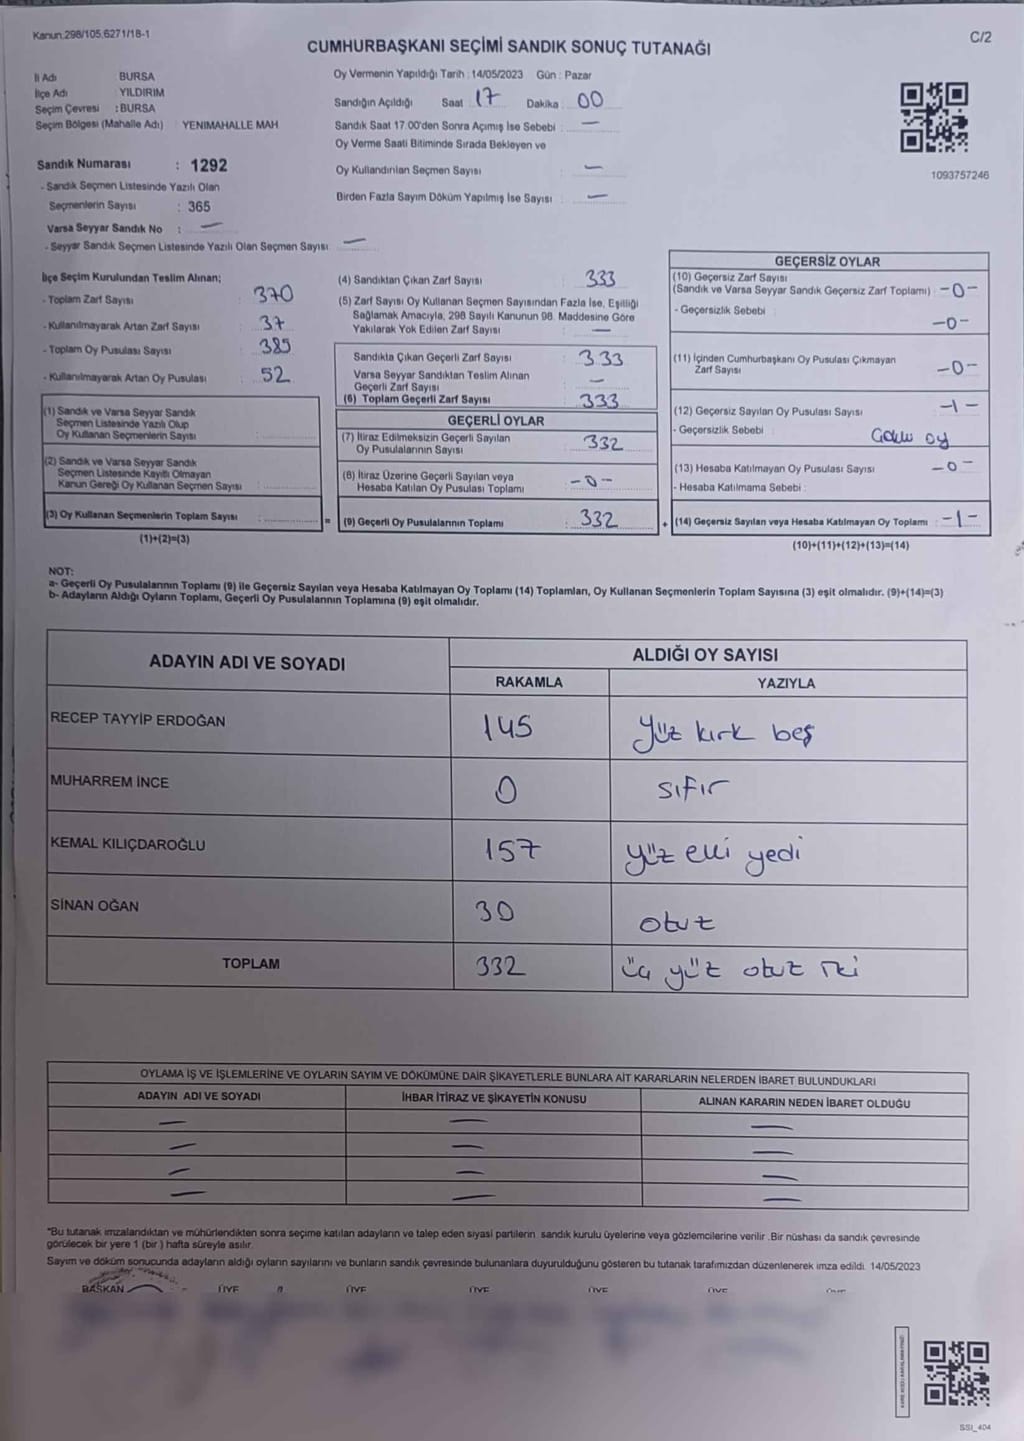 Kanun.298/105.6271/18-1
C/2
CUMHURBAŞKANI SEÇİMİ SANDIK SONUÇ TUTANAĞI
İl Adı BURSA
İlçe Adı YILDIRIM
Seçim Çevresi : BURSA
Seçim Bölgesi (Mahalle Adı) YENIMAHALLE MAH
Oy Vermenin Yapıldığı Tarih : 14/05/2023 Gün : Pazar
Sandığın Açıldığı Saat 17 Dakika 00
Sandık Saat 17.00'den Sonra Açımış İse Sebebi : —
Oy Verme Saati Bitiminde Sırada Bekleyen ve
Oy Kullandırılan Seçmen Sayısı : —
Birden Fazla Sayım Döküm Yapılmış İse Sayısı : —
1093757246
Sandık Numarası : 1292
- Sandık Seçmen Listesinde Yazılı Olan
Seçmenlerin Sayısı : 365
Varsa Seyyar Sandık No : —
- Seyyar Sandık Seçmen Listesinde Yazılı Olan Seçmen Sayısı —
İlçe Seçim Kurulundan Teslim Alınan;
- Toplam Zarf Sayısı : 370
- Kullanılmayarak Artan Zarf Sayısı : 37
- Toplam Oy Pusulası Sayısı : 385
- Kullanılmayarak Artan Oy Pusulası : 52
(1) Sandık ve Varsa Seyyar Sandık
Seçmen Listesinde Yazılı Olup
Oy Kullanan Seçmenlerin Sayısı :
(2) Sandık ve Varsa Seyyar Sandık
Seçmen Listesinde Kayıtlı Olmayan
Kanun Gereği Oy Kullanan Seçmen Sayısı :
(3) Oy Kullanan Seçmenlerin Toplam Sayısı :
(1)+(2)=(3)
(4) Sandıktan Çıkan Zarf Sayısı : 333
(5) Zarf Sayısı Oy Kullanan Seçmen Sayısından Fazla İse, Eşitliği
Sağlamak Amacıyla, 298 Sayılı Kanunun 98. Maddesine Göre
Yakılarak Yok Edilen Zarf Sayısı : —
Sandıkta Çıkan Geçerli Zarf Sayısı : 333
Varsa Seyyar Sandıktan Teslim Alınan
Geçerli Zarf Sayısı : —
(6) Toplam Geçerli Zarf Sayısı : 333
GEÇERLİ OYLAR
(7) İtiraz Edilmeksizin Geçerli Sayılan
Oy Pusulalarının Sayısı : 332
(8) İtiraz Üzerine Geçerli Sayılan veya
Hesaba Katılan Oy Pusulası Toplamı : -0-
= (9) Geçerli Oy Pusulalarının Toplamı : 332
GEÇERSİZ OYLAR
(10) Geçersiz Zarf Sayısı
(Sandık ve Varsa Seyyar Sandık Geçersiz Zarf Toplamı) : -0-
- Geçersizlik Sebebi : -0-
(11) İçinden Cumhurbaşkanı Oy Pusulası Çıkmayan
Zarf Sayısı -0-
(12) Geçersiz Sayılan Oy Pusulası Sayısı -1-
- Geçersizlik Sebebi : oy
(13) Hesaba Katılmayan Oy Pusulası Sayısı -0-
- Hesaba Katılmama Sebebi :
+ (14) Geçersiz Sayılan veya Hesaba Katılmayan Oy Toplamı : -1-
(10)+(11)+(12)+(13)=(14)
NOT:
a- Geçerli Oy Pusulalarının Toplamı (9) ile Geçersiz Sayılan veya Hesaba Katılmayan Oy Toplamı (14) Toplamları, Oy Kullanan Seçmenlerin Toplam Sayısına (3) eşit olmalıdır. (9)+(14)=(3)
b- Adayların Aldığı Oyların Toplamı, Geçerli Oy Pusulalarının Toplamına (9) eşit olmalıdır.
ADAYIN ADI VE SOYADI ALDIĞI OY SAYISI
RAKAMLA YAZIYLA
RECEP TAYYİP ERDOĞAN 145 yüz kırk beş
MUHARREM İNCE 0 sıfır
KEMAL KILIÇDAROĞLU 157 yüz elli yedi
SİNAN OĞAN 30 otuz
TOPLAM 332 üç yüz otuz iki
OYLAMA İŞ VE İŞLEMLERİNE VE OYLARIN SAYIM VE DÖKÜMÜNE DAİR ŞİKAYETLERLE BUNLARA AİT KARARLARIN NELERDEN İBARET BULUNDUKLARI
ADAYIN ADI VE SOYADI İHBAR İTİRAZ VE ŞİKAYETİN KONUSU ALINAN KARARIN NEDEN İBARET OLDUĞU
— — —
— — —
— — —
— — —
*Bu tutanak imzalandıktan ve mühürlendikten sonra seçime katılan adayların ve talep eden siyasi partilerin sandık kurulu üyelerine veya gözlemcilerine verilir .Bir nüshası da sandık çevresinde
görülecek bir yere 1 (bir ) hafta süreyle asılır.
Sayım ve döküm sonucunda adayların aldığı oyların sayılarını ve bunların sandık çevresinde bulunanlara duyurulduğunu gösteren bu tutanak tarafımızdan düzenlenerek imza edildi. 14/05/2023
BAŞKAN ÜYE ÜYE ÜYE ÜYE ÜYE
SSI_404